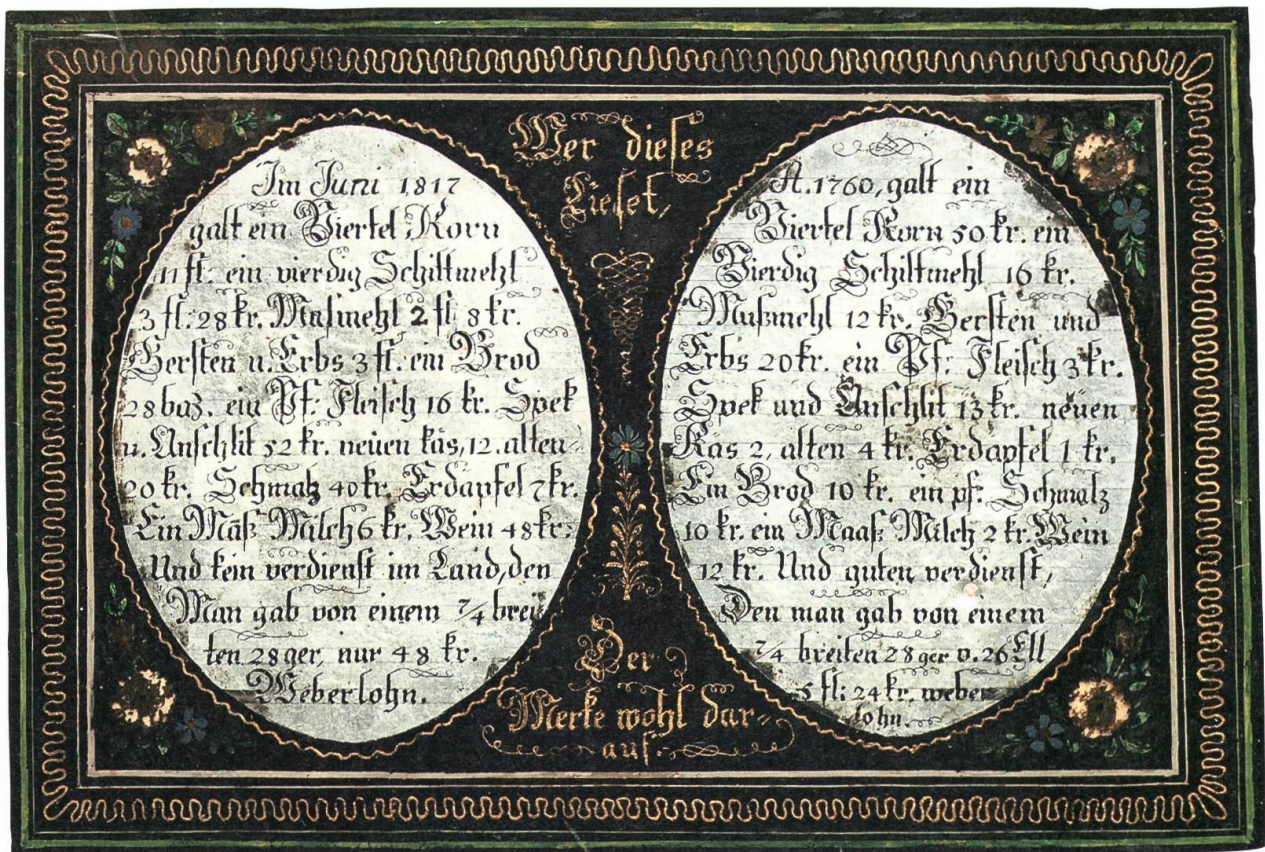 Wer dieses
Lieset,
Im Juni 1817
galt ein Viertel Korn
11 fl: ein vierdig Schiltmehl
3 fl. 28 kr. Musmehl 2 fl 8 kr.
Gersten u. Erbs 3 fl: ein Brod
28 baz. ein Pf: Fleisch 16 kr. Spek
u. Unschlit 52 kr. neüen käs, 12. alten-
20 kr. Schmalz 40 kr. Erdapfel 7 kr.
Ein Mäß Milch 6 kr. Wein 48 kr:
Und kein verdienst im Land, den
Man gab von einem 7/4 brei
ten 28 ger, nur 48 kr.
Weberlohn.
A. 1760, galt ein
Viertel Korn 50 kr. ein
Vierdig Schiltmehl 16 kr.
Mußmehl 12 kr. Gersten und
Erbs 20 kr. ein Pf: Fleisch 3 kr.
Spek und Unschlit 13 kr. neüen
Kas 2, alten 4 kr. Erdapfel 1 kr.
Ein Brod 10 kr. ein pf: Schmalz
10 kr. ein Maaß Milch 2 kr. Wein
12 kr. Und guten verdienst,
Den man gab von einem
7/4 breiten 28 ger v. 26 Ell
5 fl: 24 kr. weber
lohn.
Der
Merke wohl dar-
auf.